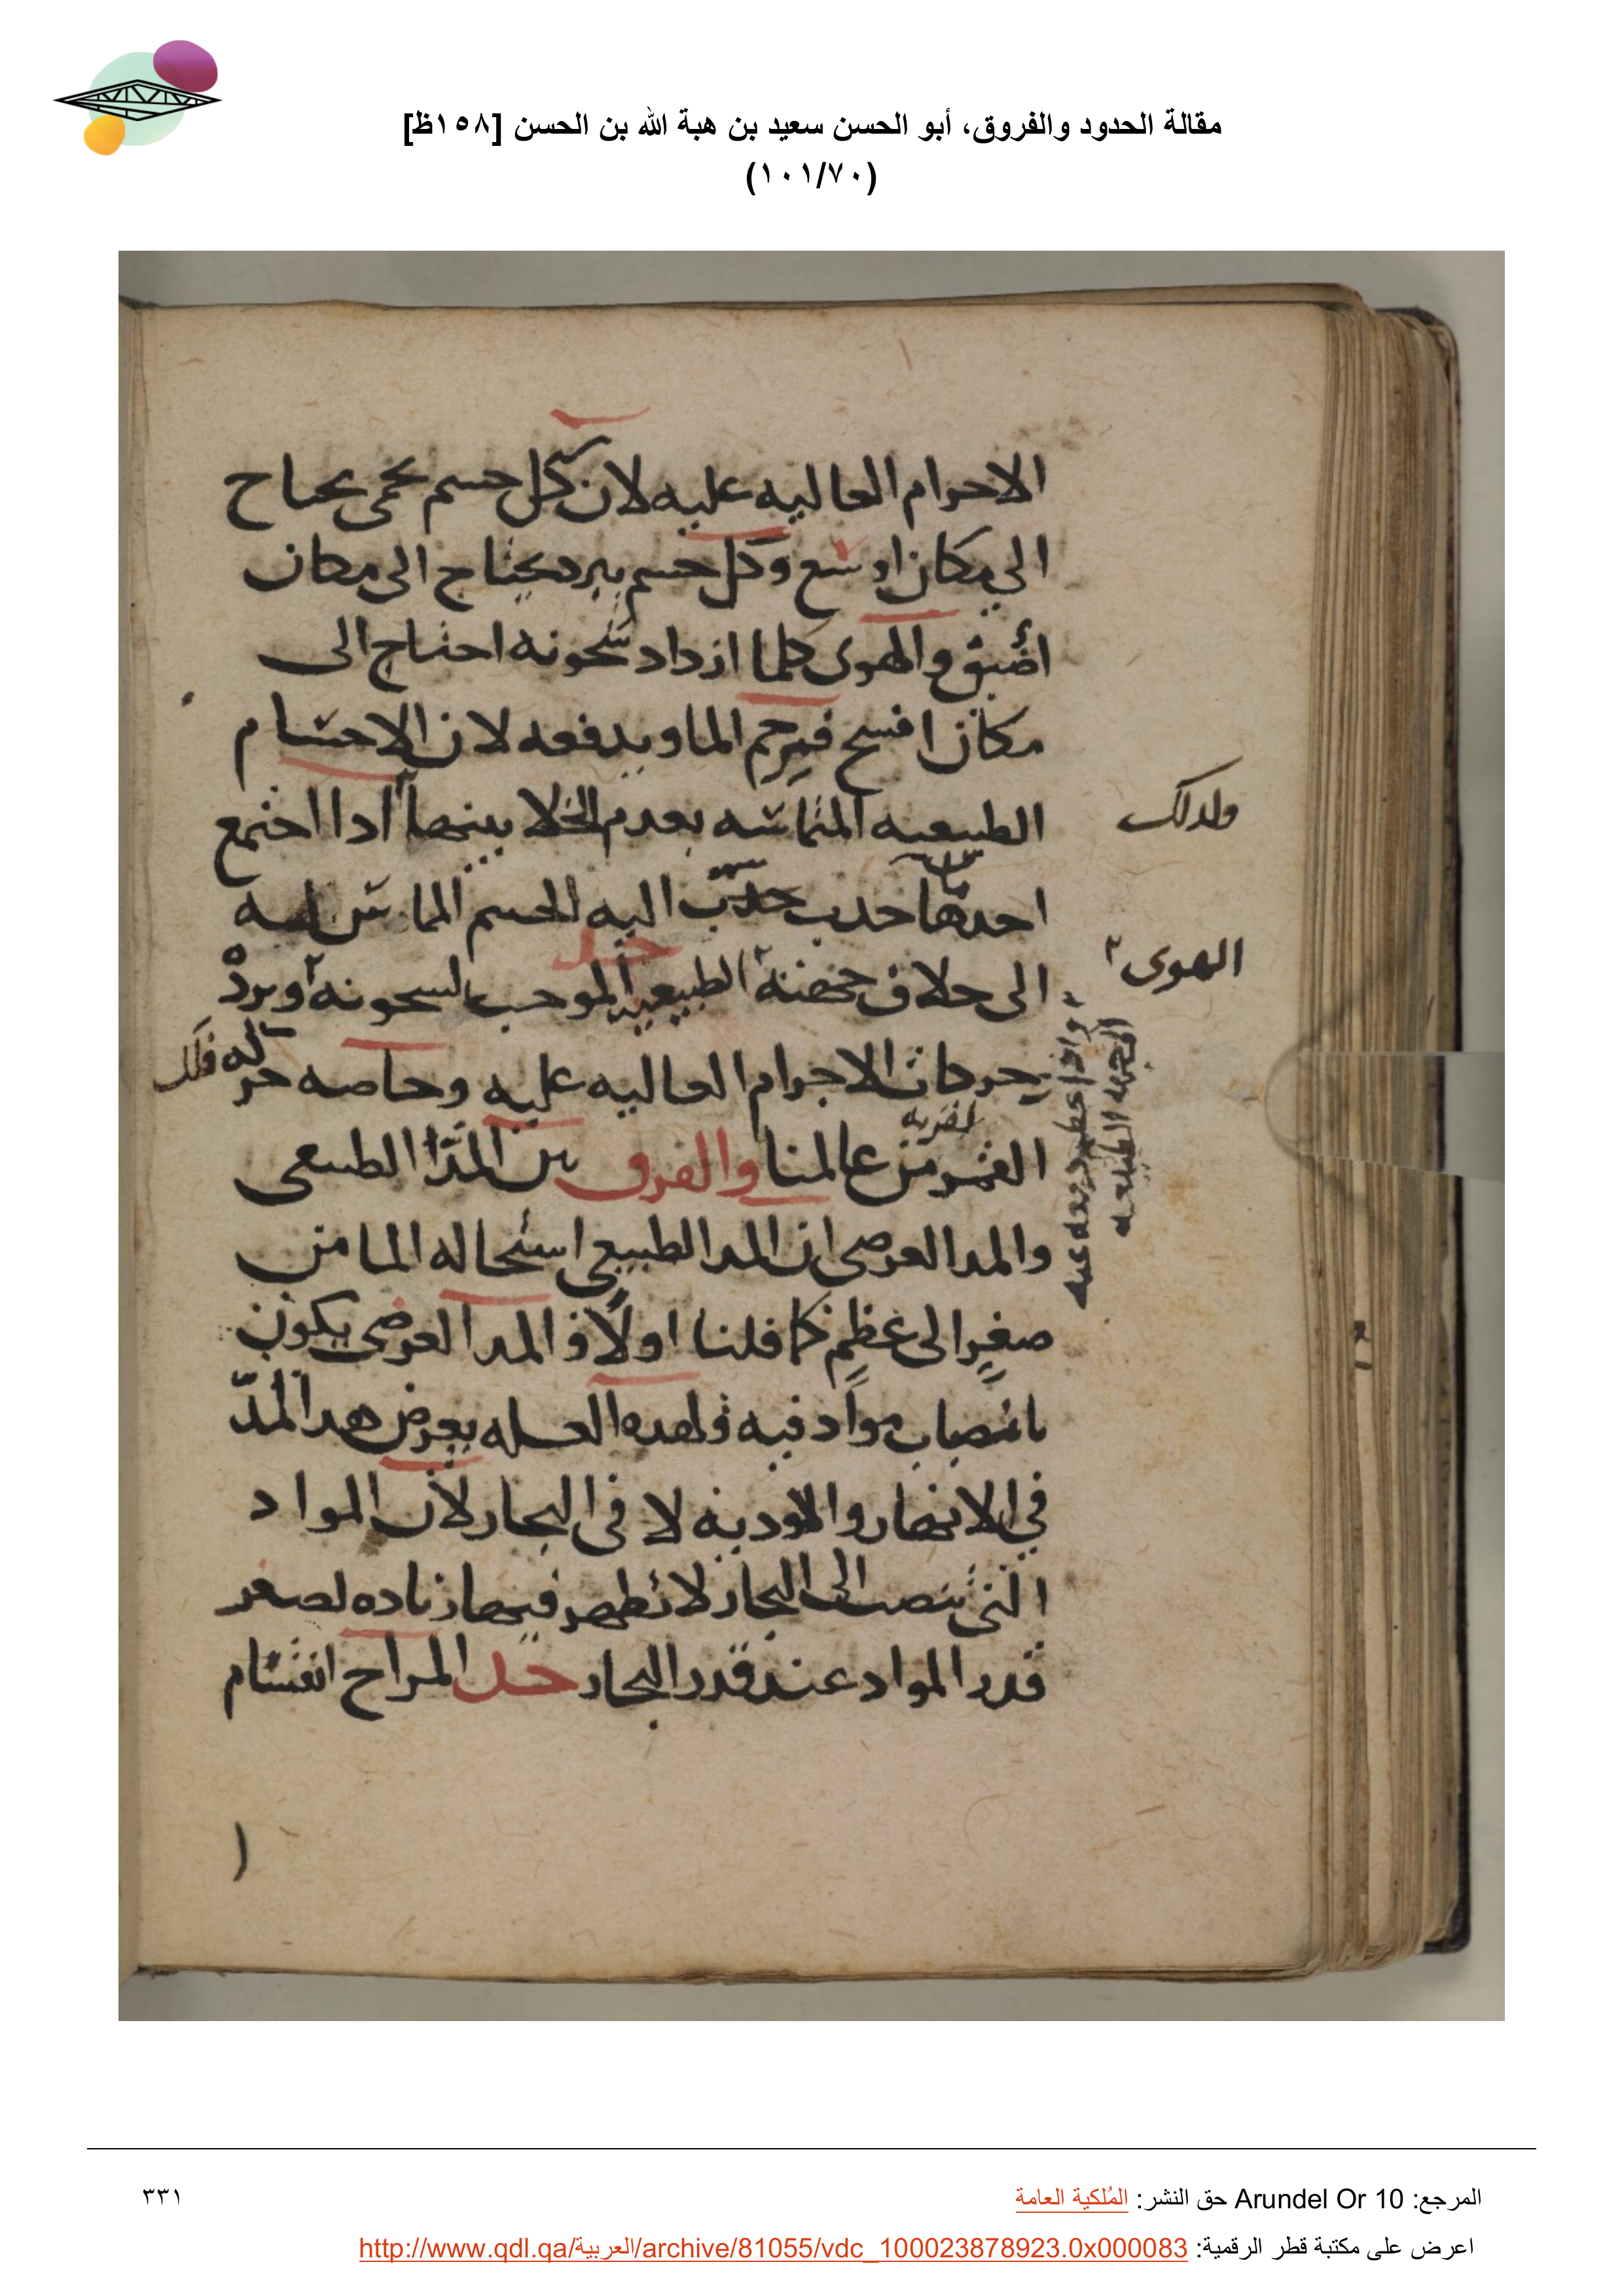 مقالة الحدود والفروق، أبو الحسن سعيد بن هبة الله بن الحسن [١٥٨ظ]
(١٠١/٧٠)
الاحرام العاليه عليه لان كل جسم يحمى يحتاج
الى مكان اوسع وكل جسم يبرد يحتاج الى مكان
اضيق والهوى كلما ازداد سخونه احتاج الى
مكان افسح فيزحم الما ويدفعه لان الاجسام
الطبيعيه المتماسه بعدم الخلا بينها ادا اجتمع
ولدلك
احدها جدب اليه الجسم المماس له
الهوى
الى خلاف الطبيعيه الموجب لسخونه او برد
بحركات الاجرام العاليه عليه وخاصه حركه فلك
القمر من عالمنا والفرق بين المدّ الطبيعى
والمد العرضى ان المد الطبيعي استحاله الما من
صغر الى عظم كما قلنا اولاً و المد العرضى يكون
بانصباب مواد فيه ولهده العله يعرض هدا المدّ
في الانهار والاوديه لا فى البحار لان المواد
التى تنصب الى البحار لا تظهر فيها زياده لصغر
قدر المواد عند قدر البحار حد المزاح انقسام
المرجع: Arundel Or 10 حق النشر: المُلكية العامة
٣٣١
اعرض على مكتبة قطر الرقمية: http://www.qdl.qa/العربية/archive/81055/vdc_100023878923.0x000083